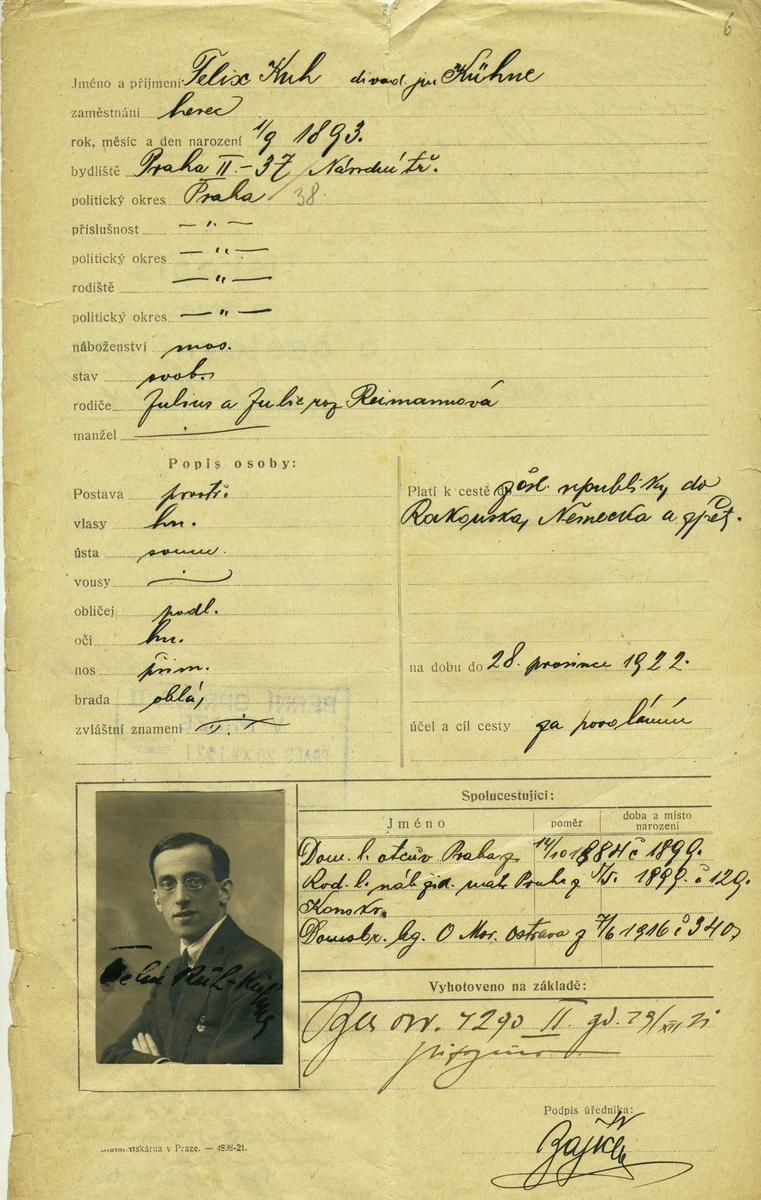 6
Jméno a příjmení Felix Kuh divad. jm Kühne
zaměstnání herec
rok, měsíc a den narození 1/9 1893.
bydliště Praha II.-37 Národní tř.
politický okres Praha 38
příslušnost — " —
politický okres — " —
rodiště — " —
politický okres — " —
náboženství mos.
stav svob.
rodiče Julius a Julie roz Reimannová
manžel
Popis osoby:
Postava prostř.
vlasy hn.
ústa soum.
vousy
obličej podl.
oči hn.
nos přim.
brada oblá,
zvláštní znamení
Platí k cestě do čsl. republiky, do
Rakouska, Německa a zpět.
na dobu do 28. prosince 1922.
účel a cíl cesty za povoláním
Spolucestující:
Jméno poměr doba a místo narození
Dom. l. otcův Praha z 14/10 1884 č 1899.
Rod. l. náb. žid. matr Praha z 1899. č 129.
Konskr.
Domobr. leg. O Mor. Ostrava z 7/6 1916 č 340,
Vyhotoveno na základě:
II.
Podpis úředníka:
v Praze. — 4898-21.